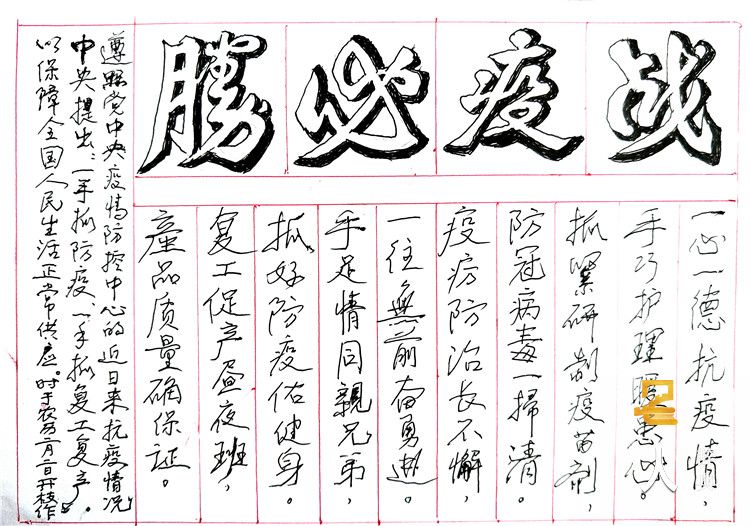 战疫必勝
一心一德抗疫情，
手巧护理暖患心。
抓緊研制疫苗剂，
防冠病毒一掃清。
疫病防治长不懈，
一往無前奋勇。
手足情同親兄弟，
抓好防疫佑健身。
复工促产昼夜班，
產品质量确保证。
遵照党中央疫情防控中心的近日来抗疫情况，
中央提出：一手抓防疫、一手抓复工复产。
以保障全国人民生活正常供应。时于农历二月二日开枝作